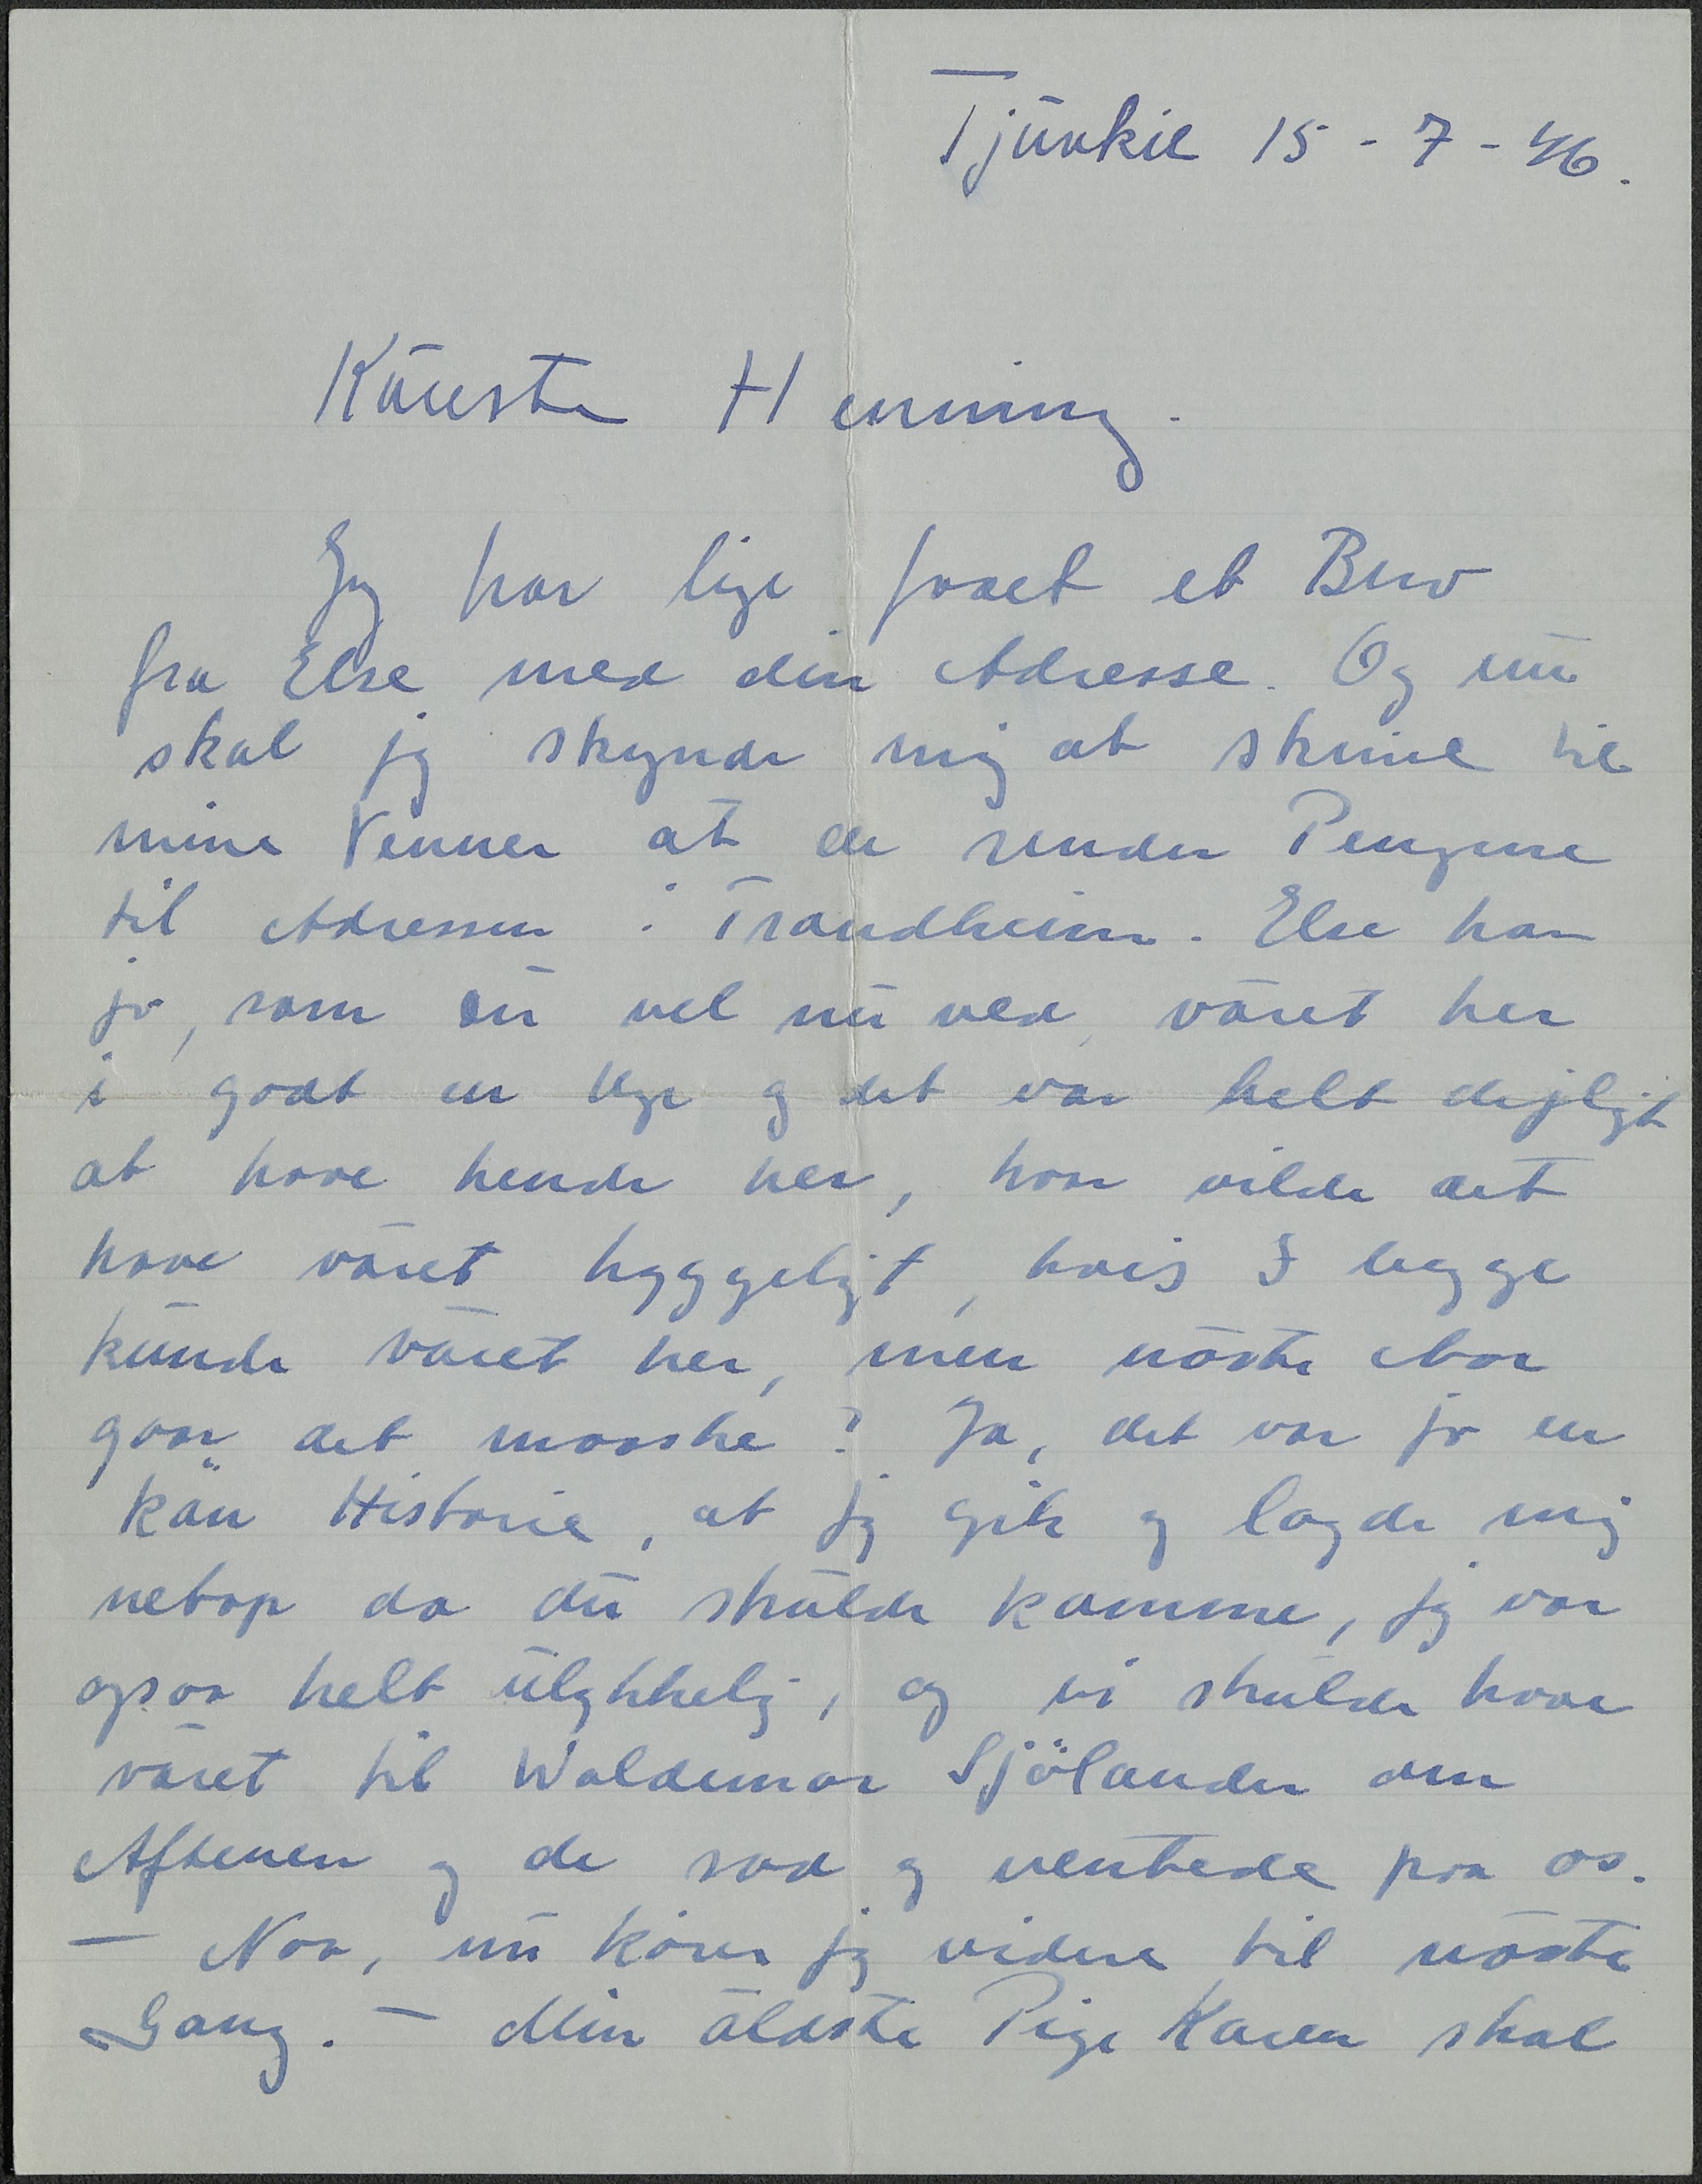 Tjüvkil 15-7-46.
Käreste Henning.
Jeg har lige faaet et Brev
fra Else med din Adresse. Og nu
skal jeg skynde mig at skrive til
mine Venner at de sender Pengene
til Adressen i Trondheim. Else har
jo, som du vel nu ved, väret her
i godt en Uge og det var helt dejligt
at have hende her, hvor vilde det
have väret hyggeligt, hvis I begge
kunde väret her, men näste Aar
gaar det maaske? Ja, det var jo en
kön Historie, at jeg gik og lagde mig
netop da du skulde komme, jeg var
ogsaa helt ulykkelig, og vi skulde have
väret til Waldemar Sjölander om
Aftenen og de sad og ventede paa os.
– Naa, nu körer jeg videre til näste
Gang. – Min äldste Pige Karen skal